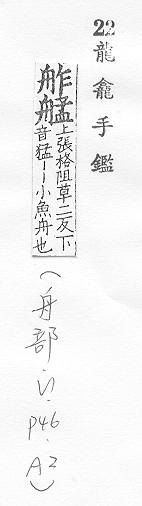 22龍龕手鑑
舴艋上張格阻草二反下音猛——小魚舟也
（舟部·
P46·
A2）